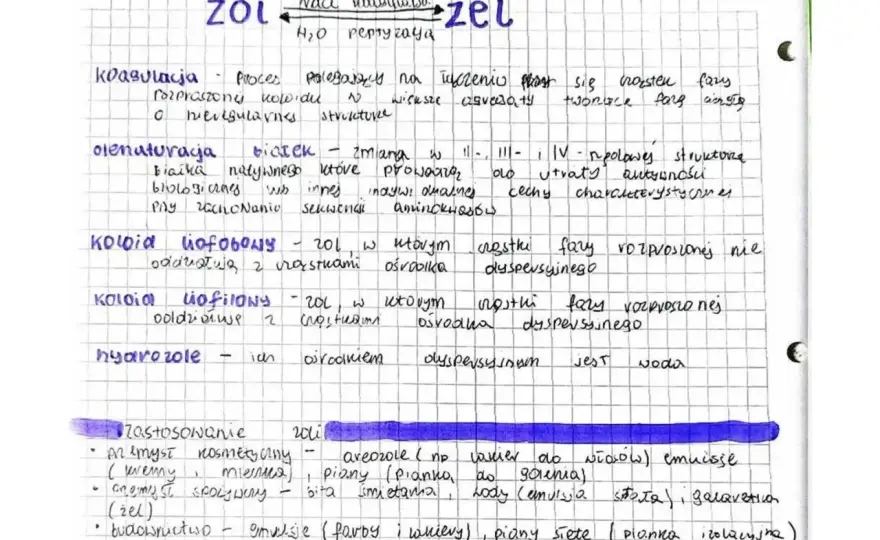 zol żel
H₂O peptyzacja
koagulacja - proces polegający na łączeniu się cząstek fazy
rozproszonej koloidu w większe agregaty tworzące fazę ciągłą
o nieregularnej strukturze
denaturacja białek - zmiana w II-, III- i IV-rzędowej strukturze
białka natywnego które prowadzą do utraty aktywności
biologicznej lub innej indywidualnej cechy charakterystycznej
przy zachowaniu sekwencji aminokwasów
koloid liofobowy - zol, w którym cząstki fazy rozproszonej nie
oddziałują z cząstkami ośrodka dyspersyjnego
koloid liofilowy - zol, w którym cząstki fazy rozproszonej
oddziałuje z cząstkami ośrodka dyspersyjnego
hydrozole - ich ośrodkiem dyspersyjnym jest woda
zastosowanie zoli
• przemysł kosmetyczny - areozole (np lakier do włosów) emulsje
(kremy, mleczka), piany (pianka do golenia)
• przemysł spożywczy - bita śmietana, lody (emulsja stała), galaretka
(żel)
• budownictwo - emulsje (farby i lakiery), piany stałe (pianka izolacyjna)